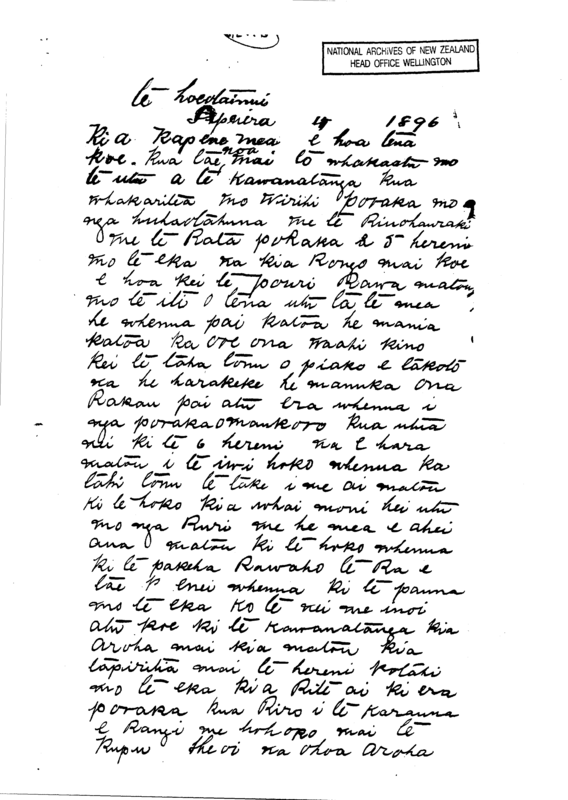 NATIONAL ARCHIVES OF NEW ZEALAND
HEAD OFFICE WELLINGTON
te hoeotainui
Aperira 4 1896
Kia Kapene mea e hoa tena
koe. Kua tae noa mai to whakaatu mo
te utu a te Kawanatanga kua
whakaritea mo Wirihi poraka mo
nga huhaotahuna me te Rinohauraki
me te Rata poraka & 5 hereni
mo te eka na kia Rongo mai koe
e hoa kei te pouri Rawa matou
mo te iti o tena utu ta te mea
he whenua pai katoa he mania
katoa ka ore ona waahi kino
kei te taha tonu o piako e takoto
na he harakeke he manuka ona
Rakau pai atu era whenua i
nga poraka omankoro kua utua
nei ki te 6 hereni na e hara
matou i te iwi hoko whenua ka
tahi tonu te take i me ai matou
ki te hoko kia whai moni hei utu
mo nga Ruri me he mea e ahei
ana matou ki te hoko whenua
ki te pakeha Rawaho te Ra e
tae enei whenua ki te pauna
mo te eka ko te nei me inoi
atu koe ki te Kawanatanga kia
aroha mai kia matou kia
tapiritia mai te hereni kotahi
mo te eka kia Rite ai ki era
poraka kua Riro i te Karauna
e Rangi me hohoro mai te
kupu heoi na ohoa aroha